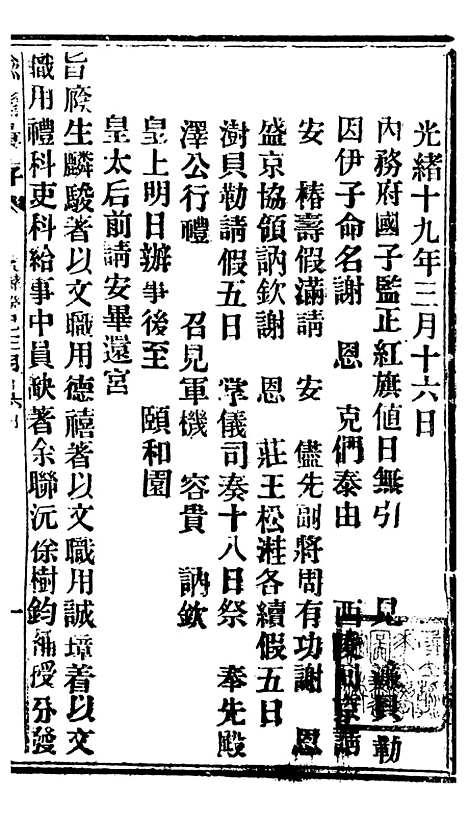 光緒十九年三月十六日
內務府國子監正紅旗値日無引　見　貝勒
因伊子命名謝　恩　克們泰由　西陵回京請
安　椿壽假滿請　安　儘先副將周有功謝　恩
盛京協領訥欽謝　恩　莊王松溎各續假五日
澍貝勒請假五日　掌儀司奏十八日祭　奉先殿
澤公行禮　召見軍機　容貴　訥欽
皇上明日辦事後至　頤和園
皇太后前請安畢還宮
旨廕生麟駿著以文職用德禧著以文職用誠璋着以文
職用禮科吏科給事中員缺著余聯沅徐樹鈞補授分發